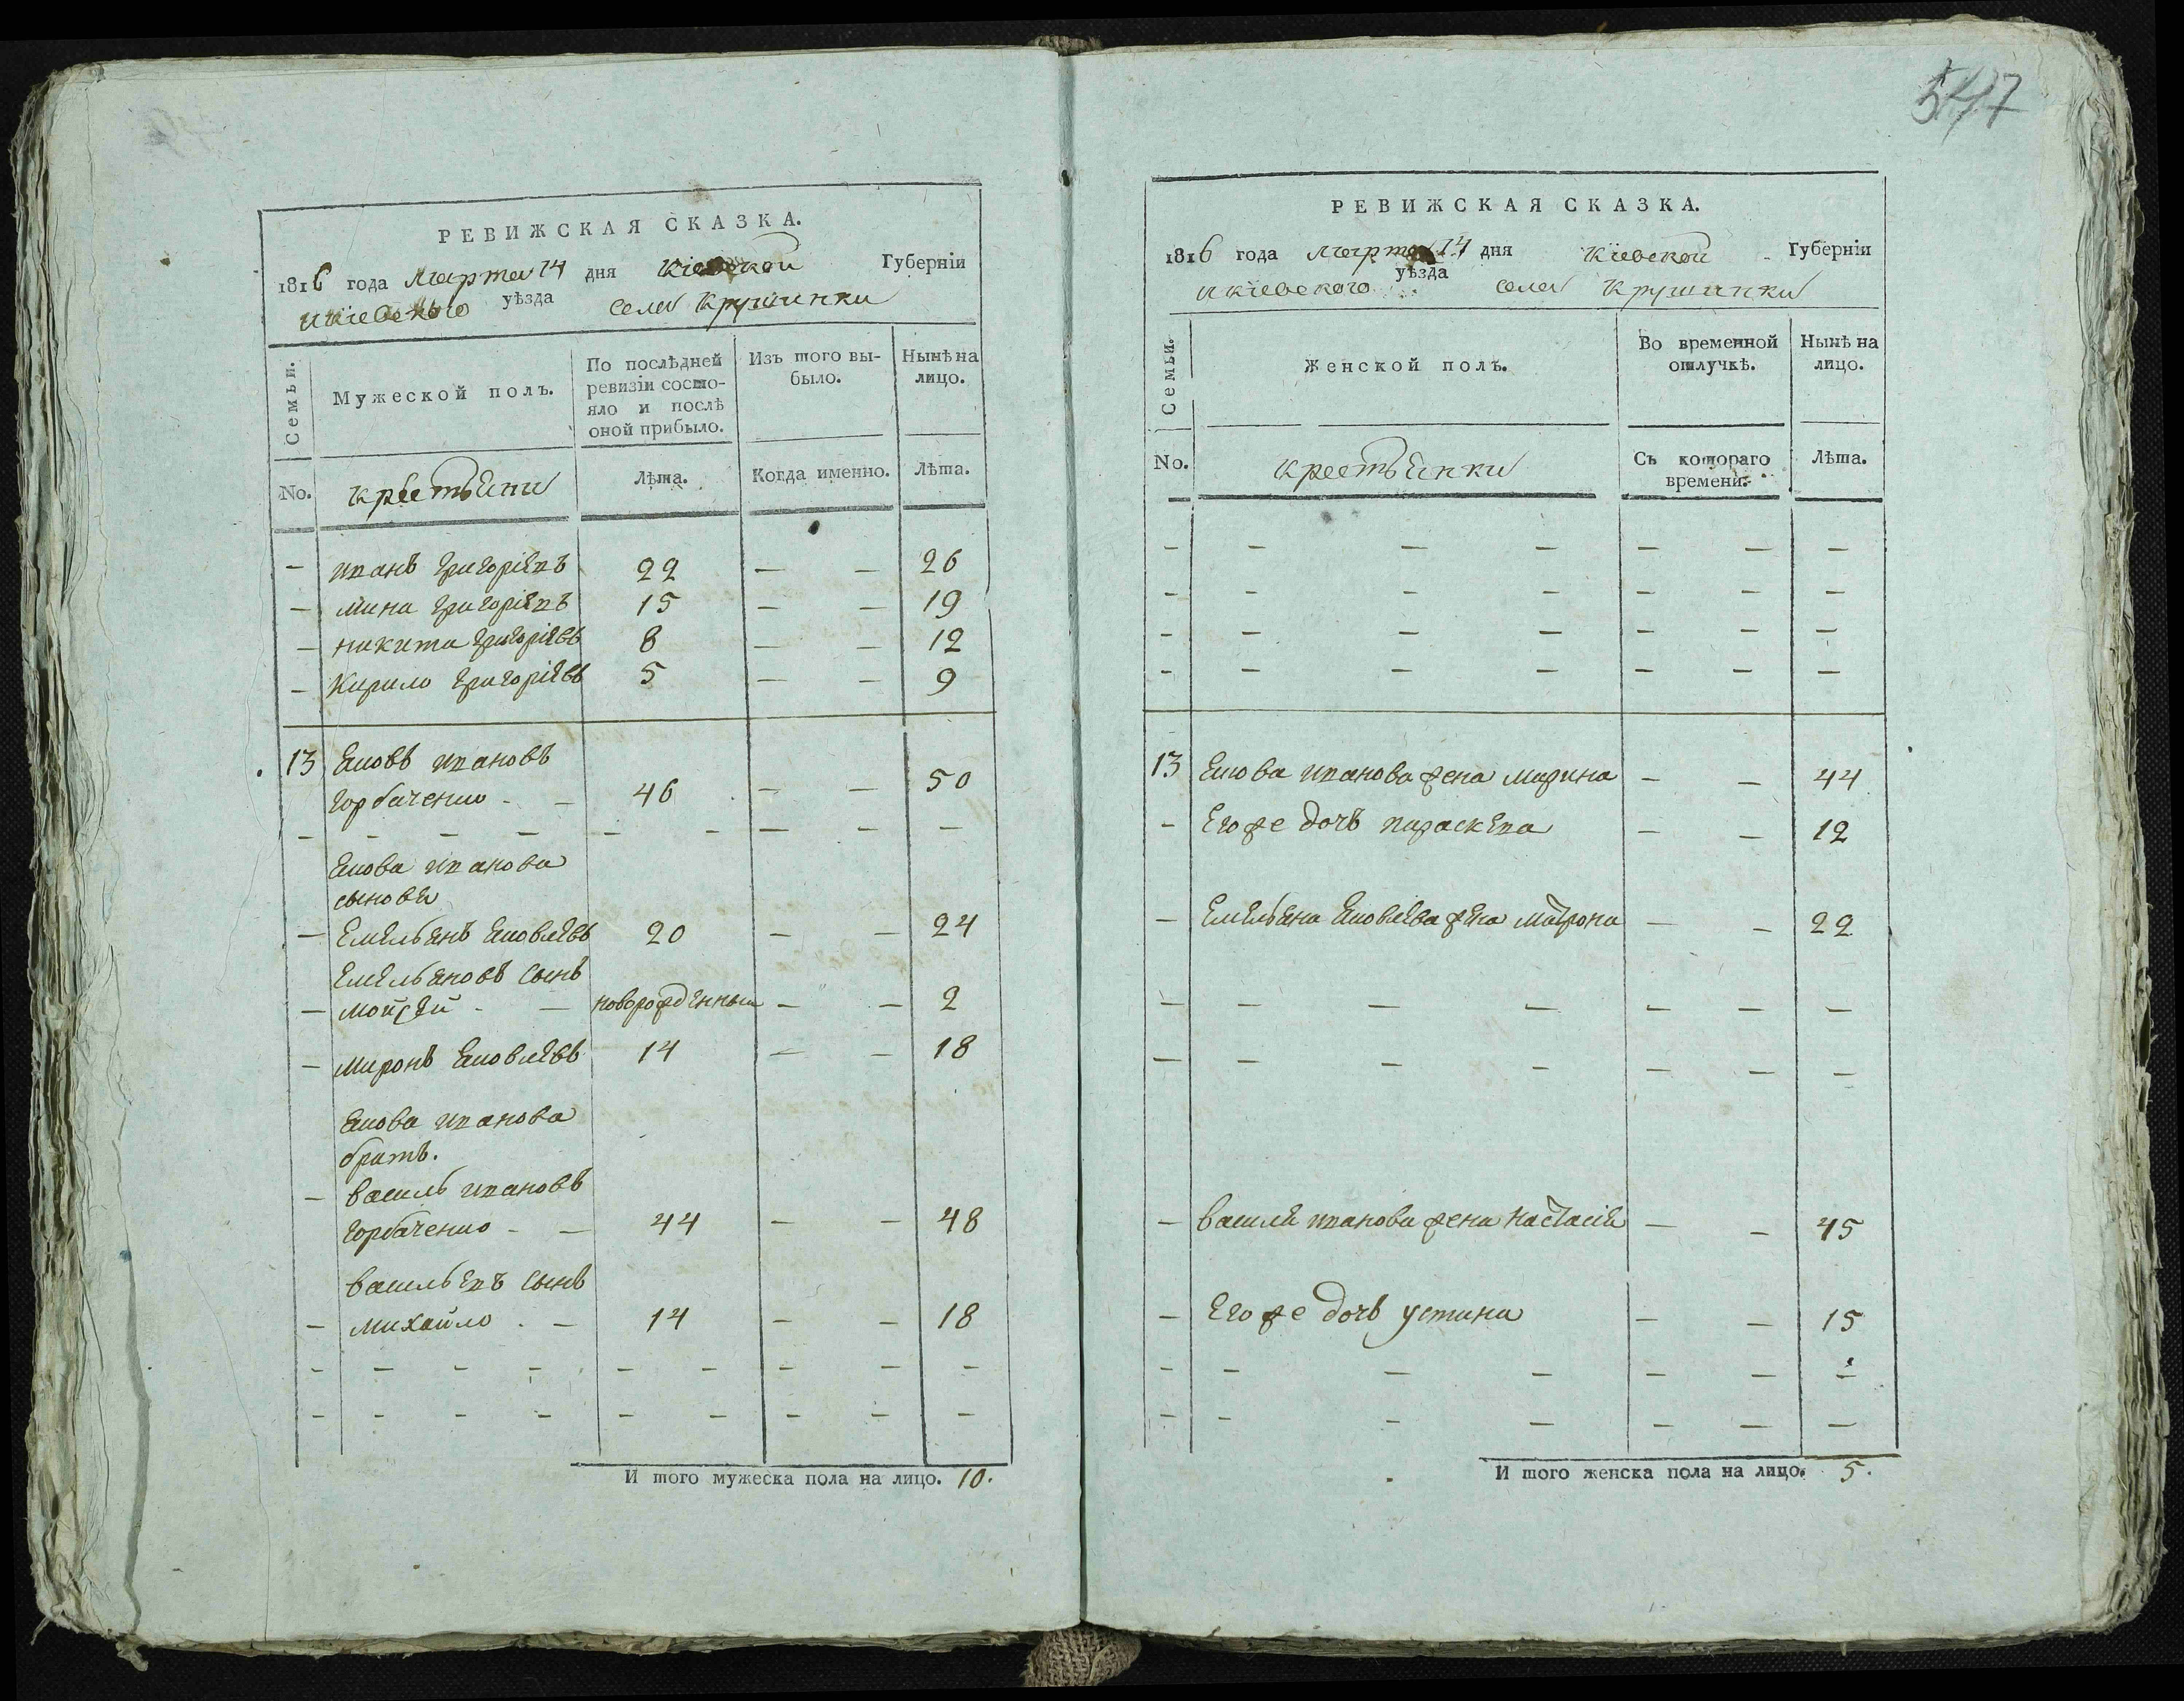 547
РЕВИЖСКАЯ СКАЗКА.
1816 года Марта 14 дня Кіевской Губерніи
Икіевского уѣзда села Крушинки
Семьи.
Мужеской полъ.
По послѣдней ревизіи состояло и послѣ оной прибыло.
Изъ того выбыло.
Нынѣ на лицо.
No. крестьяни Лѣта. Когда именно. Лѣта.
— иванъ григоріевъ 22 — — 26
— мина григоріевъ 15 — — 19
— никита григоріевъ 8 — — 12
— Кирило григоріевъ 5 — — 9
13 яковъ ивановъ
горбаченко - — 46 — — 50
— — — — — — — — —
якова иванова
сыновя
— Емельянъ яковлевъ 20 — — 24
Емельяновъ сынъ
— мойсей - — новорожденный — — 2
— миронъ яковлевъ 14 — — 18
якова иванова
братъ.
— василь ивановъ
горбаченко - — 44 — — 48
васильевъ сынъ
— михайло - — 14 — — 18
— — — — — — — — —
— — — — — — — — —
И того мужеска пола на лицо. 10.
РЕВИЖСКАЯ СКАЗКА.
1816 года Марта 14 дня Кіевской Губерніи
Икіевского уѣзда села Крушинки
Семьи.
Женской полъ.
Во временной отлучкѣ.
Нынѣ на лицо.
No. крестьянки Съ котораго времени. Лѣта.
— — — — — — —
— — — — — — —
— — — — — — —
— — — — — — —
13 Якова иванова жена марина — — 44
— Его же дочь параскева — — 12
— Емельяна яковлева жена матрона — — 22
— — — — — — —
— — — — — — —
— василя иванова жена настасія — — 45
— Его же дочь устина — — 15
— — — — — — —
— — — — — — —
И того женска пола на лицо. 5.